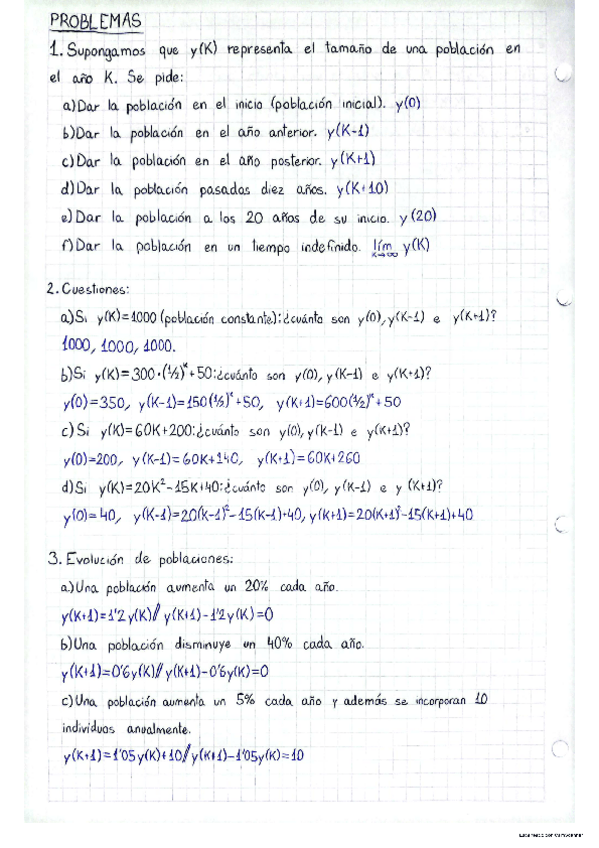 PROBLEMAS
1. Supongamos que y(K) representa el tamaño de una población en
el año K. Se pide:
a) Dar la población en el inicio (población inicial). y(0)
b) Dar la población en el año anterior. y(K-1)
c) Dar la población en el año posterior. y(K+1)
d) Dar la población pasados diez años. y(K+10)
e) Dar la población a los 20 años de su inicio. y(20)
f) Dar la población en un tiempo indefinido. lím K→∞ y(K)
2. Cuestiones:
a) Si y(K)=1000 (población constante): ¿cuánto son y(0), y(K-1) e y(K+1)?
1000, 1000, 1000.
b) Si y(K)=300·(1/2)^K+50: ¿cuánto son y(0), y(K-1) e y(K+1)?
y(0)=350, y(K-1)=150(1/2)^K+50, y(K+1)=600(1/2)^K+50
c) Si y(K)=60K+200: ¿cuánto son y(0), y(K-1) e y(K+1)?
y(0)=200, y(K-1)=60K+140, y(K+1)=60K+260
d) Si y(K)=20K²-15K+40: ¿cuánto son y(0), y(K-1) e y(K+1)?
y(0)=40, y(K-1)=20(K-1)²-15(K-1)+40, y(K+1)=20(K+1)²-15(K+1)+40
3. Evolución de poblaciones:
a) Una población aumenta un 20% cada año.
y(K+1)=1'2y(K)// y(K+1)-1'2y(K)=0
b) Una población disminuye un 40% cada año.
y(K+1)=0'6y(K)// y(K+1)-0'6y(K)=0
c) Una población aumenta un 5% cada año y además se incorporan 10
individuos anualmente.
y(K+1)=1'05y(K)+10// y(K+1)-1'05y(K)=10